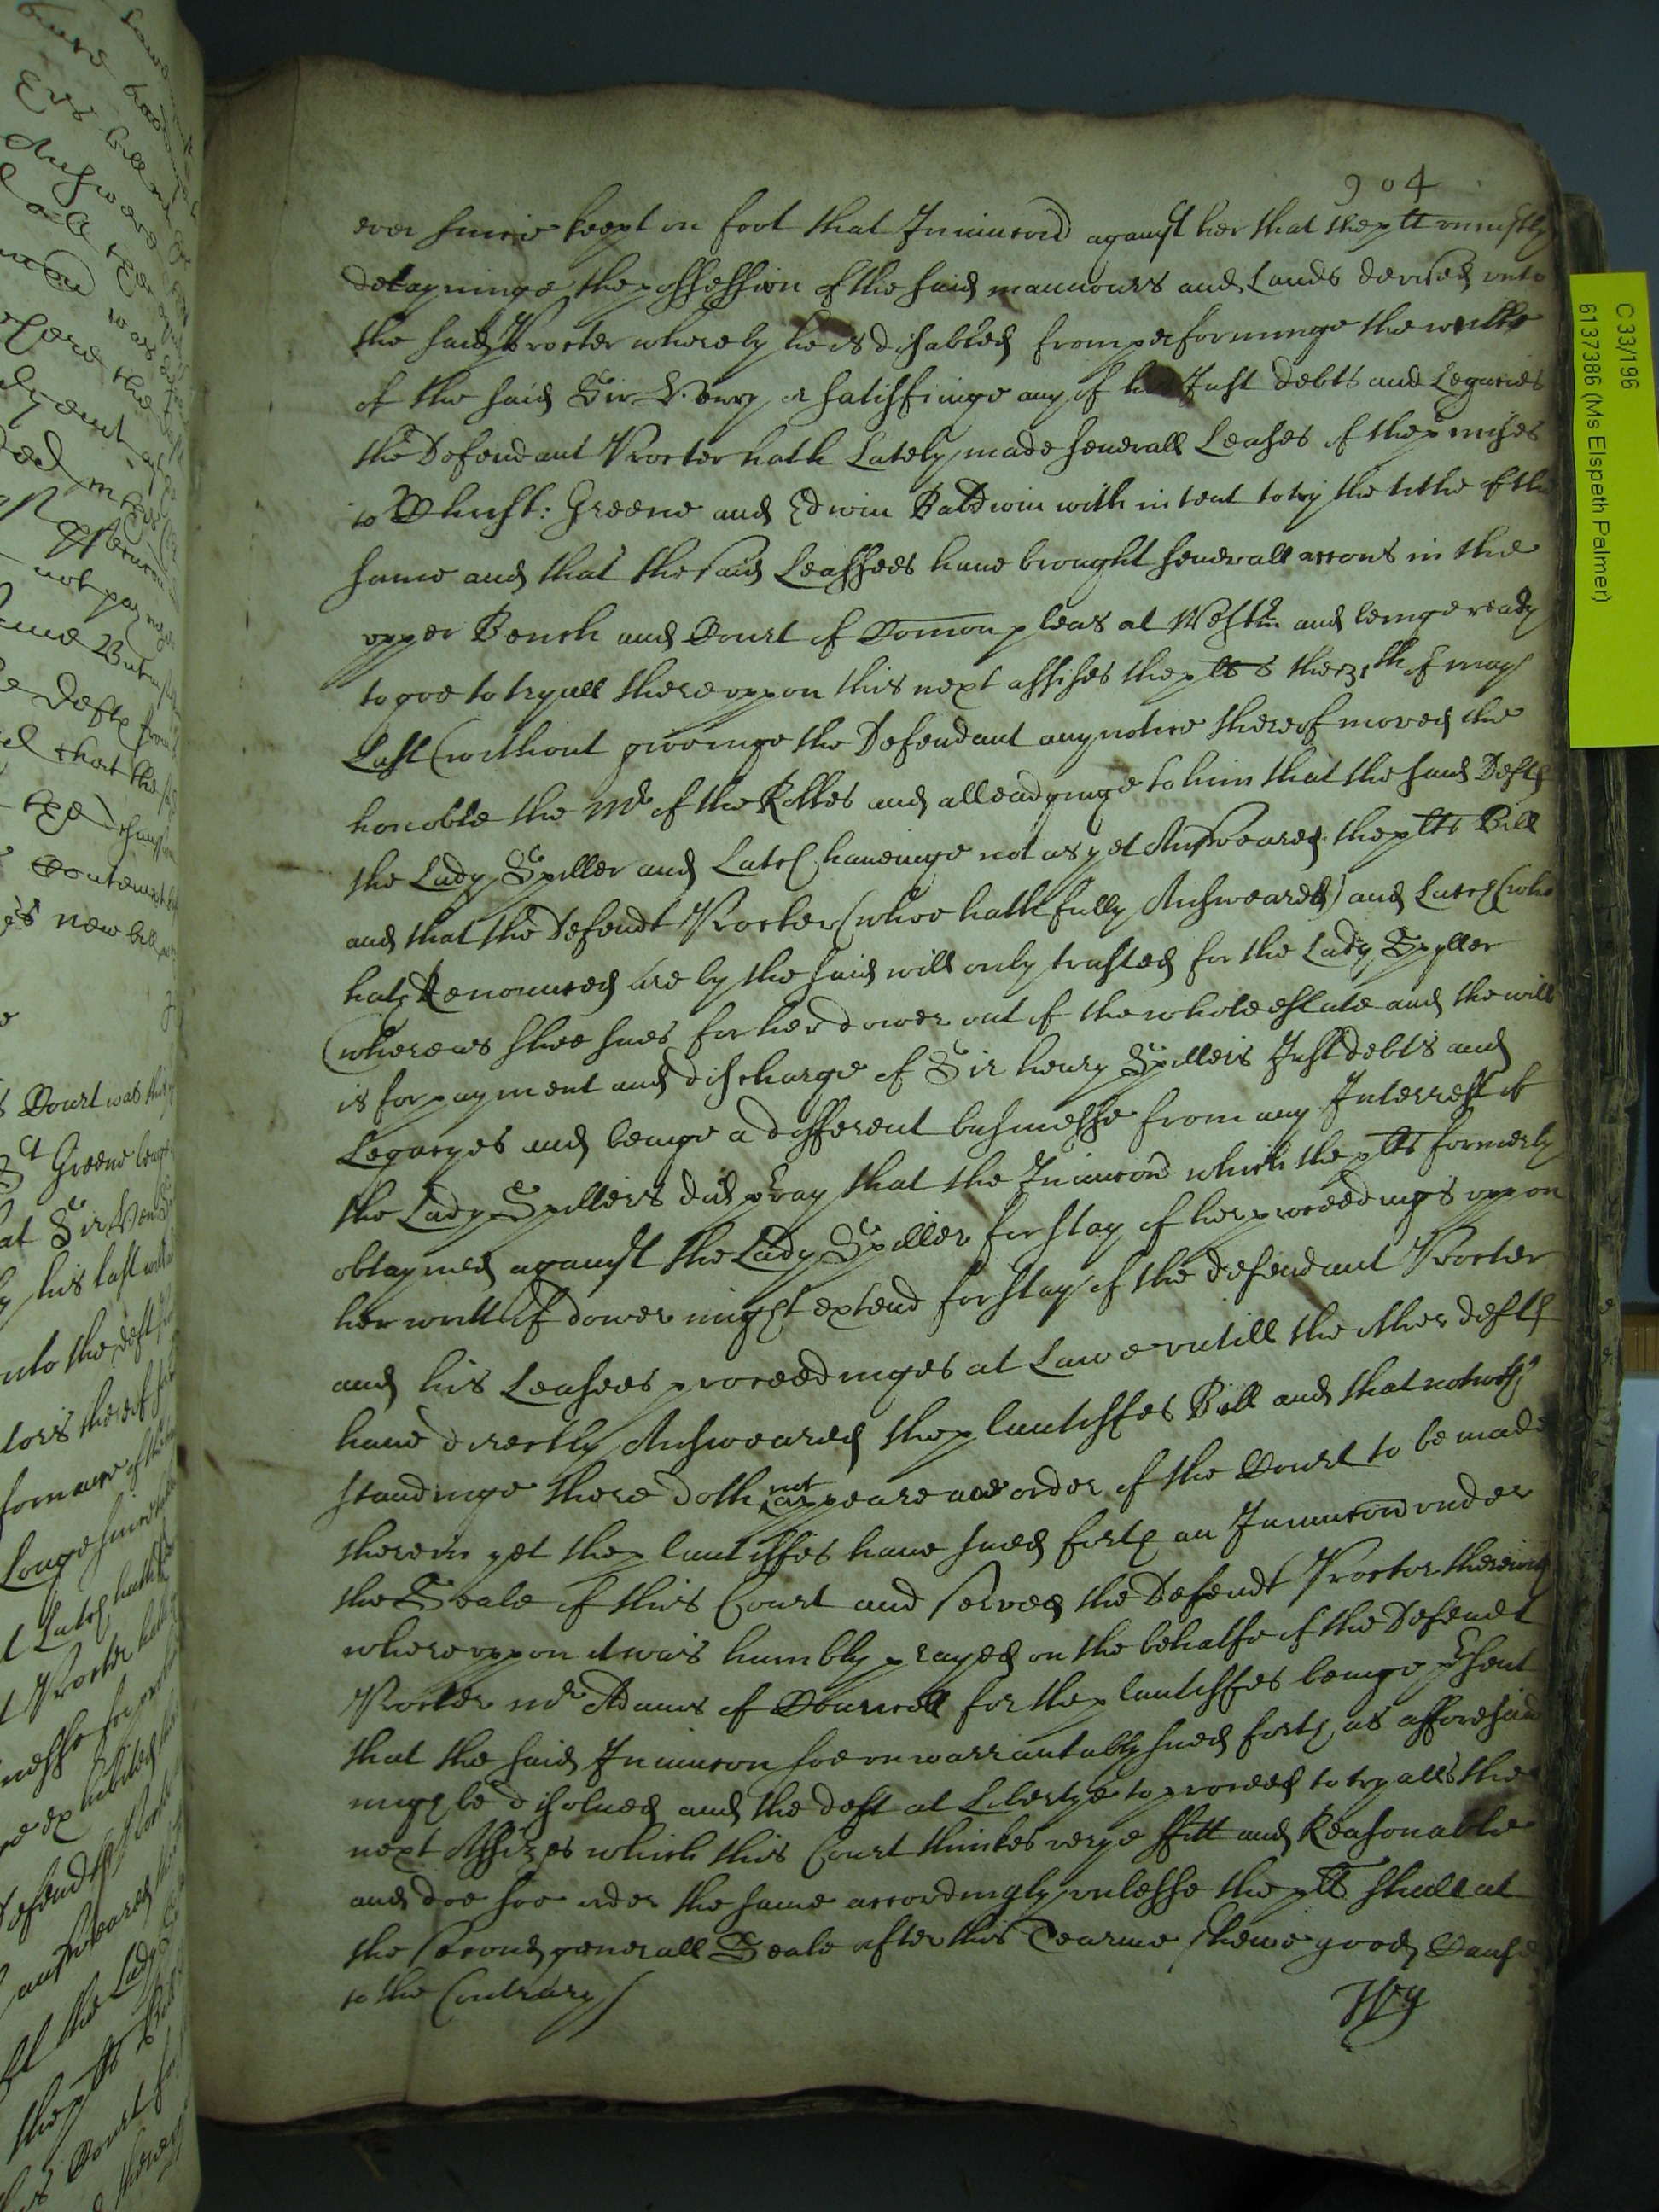 904
ever since keept on foot that Iniuncon against her that the plt uniustly
detayninge the possession of the said mannours and Lands devised vnto
the said Procter whereby he is disabled from performinge the will
of the said Sir Henry or satisfiinge any of his Just debts and Legacies
the Defendant Procter hath Lately made seuerall Leases of the pmises
to Greene and Edwin Baldwin with intent to try the title of the
same and that the said Leassees haue brought seuerall accons in the
vpper Bench and Court of Comon pleas at Westm and beinge ready
to goe to tryall therevppon this next assises the plts the 31th of may
Last (without giveinge the Defendant any notice thereof moved the
honoble the Mr of the Rolles and alleadginge to him that the said Defts
the Lady Spiller and Latch haueinge not as yet Answeared the plts Bill
and that the Defendt Procter (whoe hath fully Answeared) and Latch (who
hath Renounced are by the said will only trusted for the Lady Spyller
(whereas shee sues for her dower out of the whole estate and the will
is for payment and discharge of Sir henry Spillers Just debts and
Legacyes and beinge a different businesse from any Interrest of
the Lady Spillers did pray that the Iniuncon which the plts formerly
obtayned against the Lady Spiller for stay of her proceedings vppon
her writt of dower might extend for stay of the defendant Procter
and his Leasees proceedinges at Lawe vntill the other defts
haue directly Answeared the plantiffes Bill and that notwth
standinge there doth not appeare anie order of the Court to be made
therein yet the plantiffes haue sued forth an Iniuncon vnder
the Seale of this Court and served the Defendt Procter therewith
wherevppon it was humbly prayed on the behalfe of the Defendt
Procter mr Adams of Councell for the plantiffes beinge psent
that the said Iniuncon soe vnwarrantably sued forth as afforesaid
might be disolued and the deft at Libertye to proceed to tryalls the
next Assizes which this Court thinkes verye ffitt and Reasonable
and doe soe order the same accordingly vnlesse the plts shall at
the second generall Seale after this Tearme shewe good Cause
to the Contrary /
C 33/196
6137386 (Ms Elspeth Palmer)